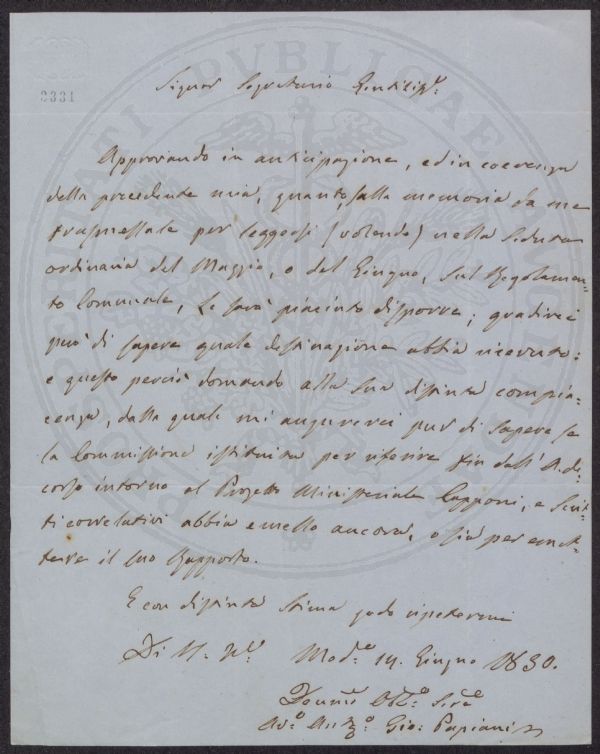 PROSPERITATI PVBLICAE AVGENDAE
2331
Signor Segretario Gentilis.º
Approvando in anticipazione, ed in coerenza
della precedente mia, quanto sulla memoria da me
trasmessale per leggersi (volendo) nella seduta
ordinaria del Maggio, o del Giugno, sul Regolamen-
to Comunale, Le sarà piaciuto disporre; gradirei
può di sapere quale destinazione abbia ricevuto:
e questo perciò domando alla sua distinta compia=
cenza, dalla quale mi augurerei pur di sapere se
la Commissione istituita per riferire fin dall' A. de-
corso intorno al Progetto Ministeriale Capponi, e Scrit-
ti correlativi abbia emesso ancora, o sia per emet-
tere il suo Rapporto.
E con distinta stima godo ripetermi
Di V. Mod.ª 14. Giugno 1850.
Av.º Gio: Papiani